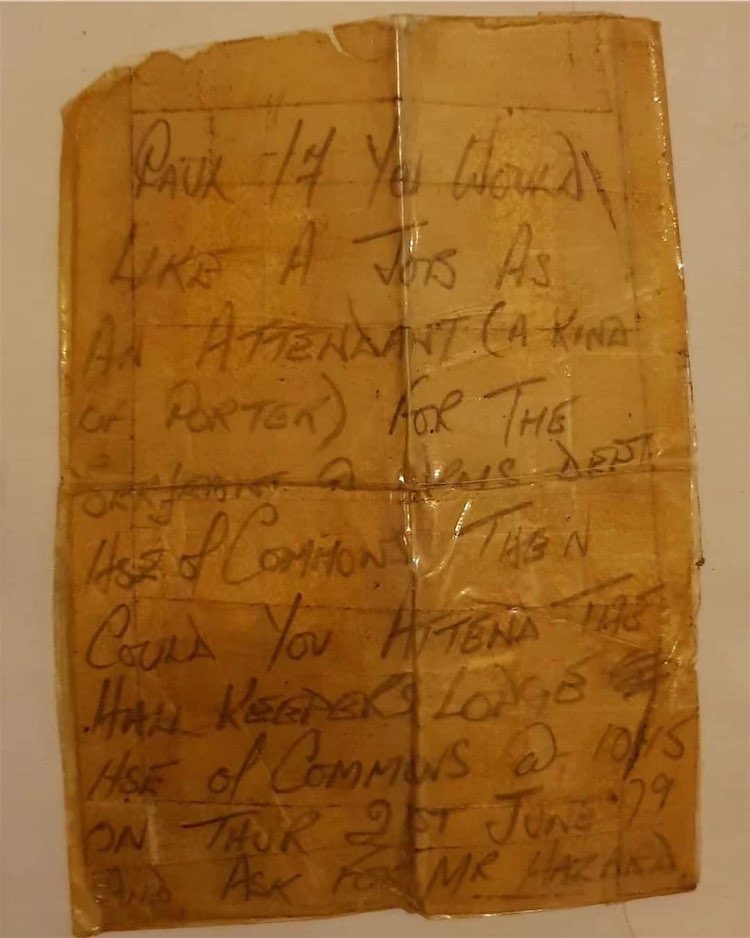 PAUL IF YOU WOULD
LIKE A JOB AS
AN ATTENDANT (A KIND
OF PORTER) FOR THE
SERJEANT @ ARMS DEPT
HSE of COMMONS THEN
COULD YOU ATTEND THE
HALL KEEPERS LODGE
HSE of COMMONS @ 1045
ON THUR 21ST JUNE '79
AND ASK FOR MR HAZARD